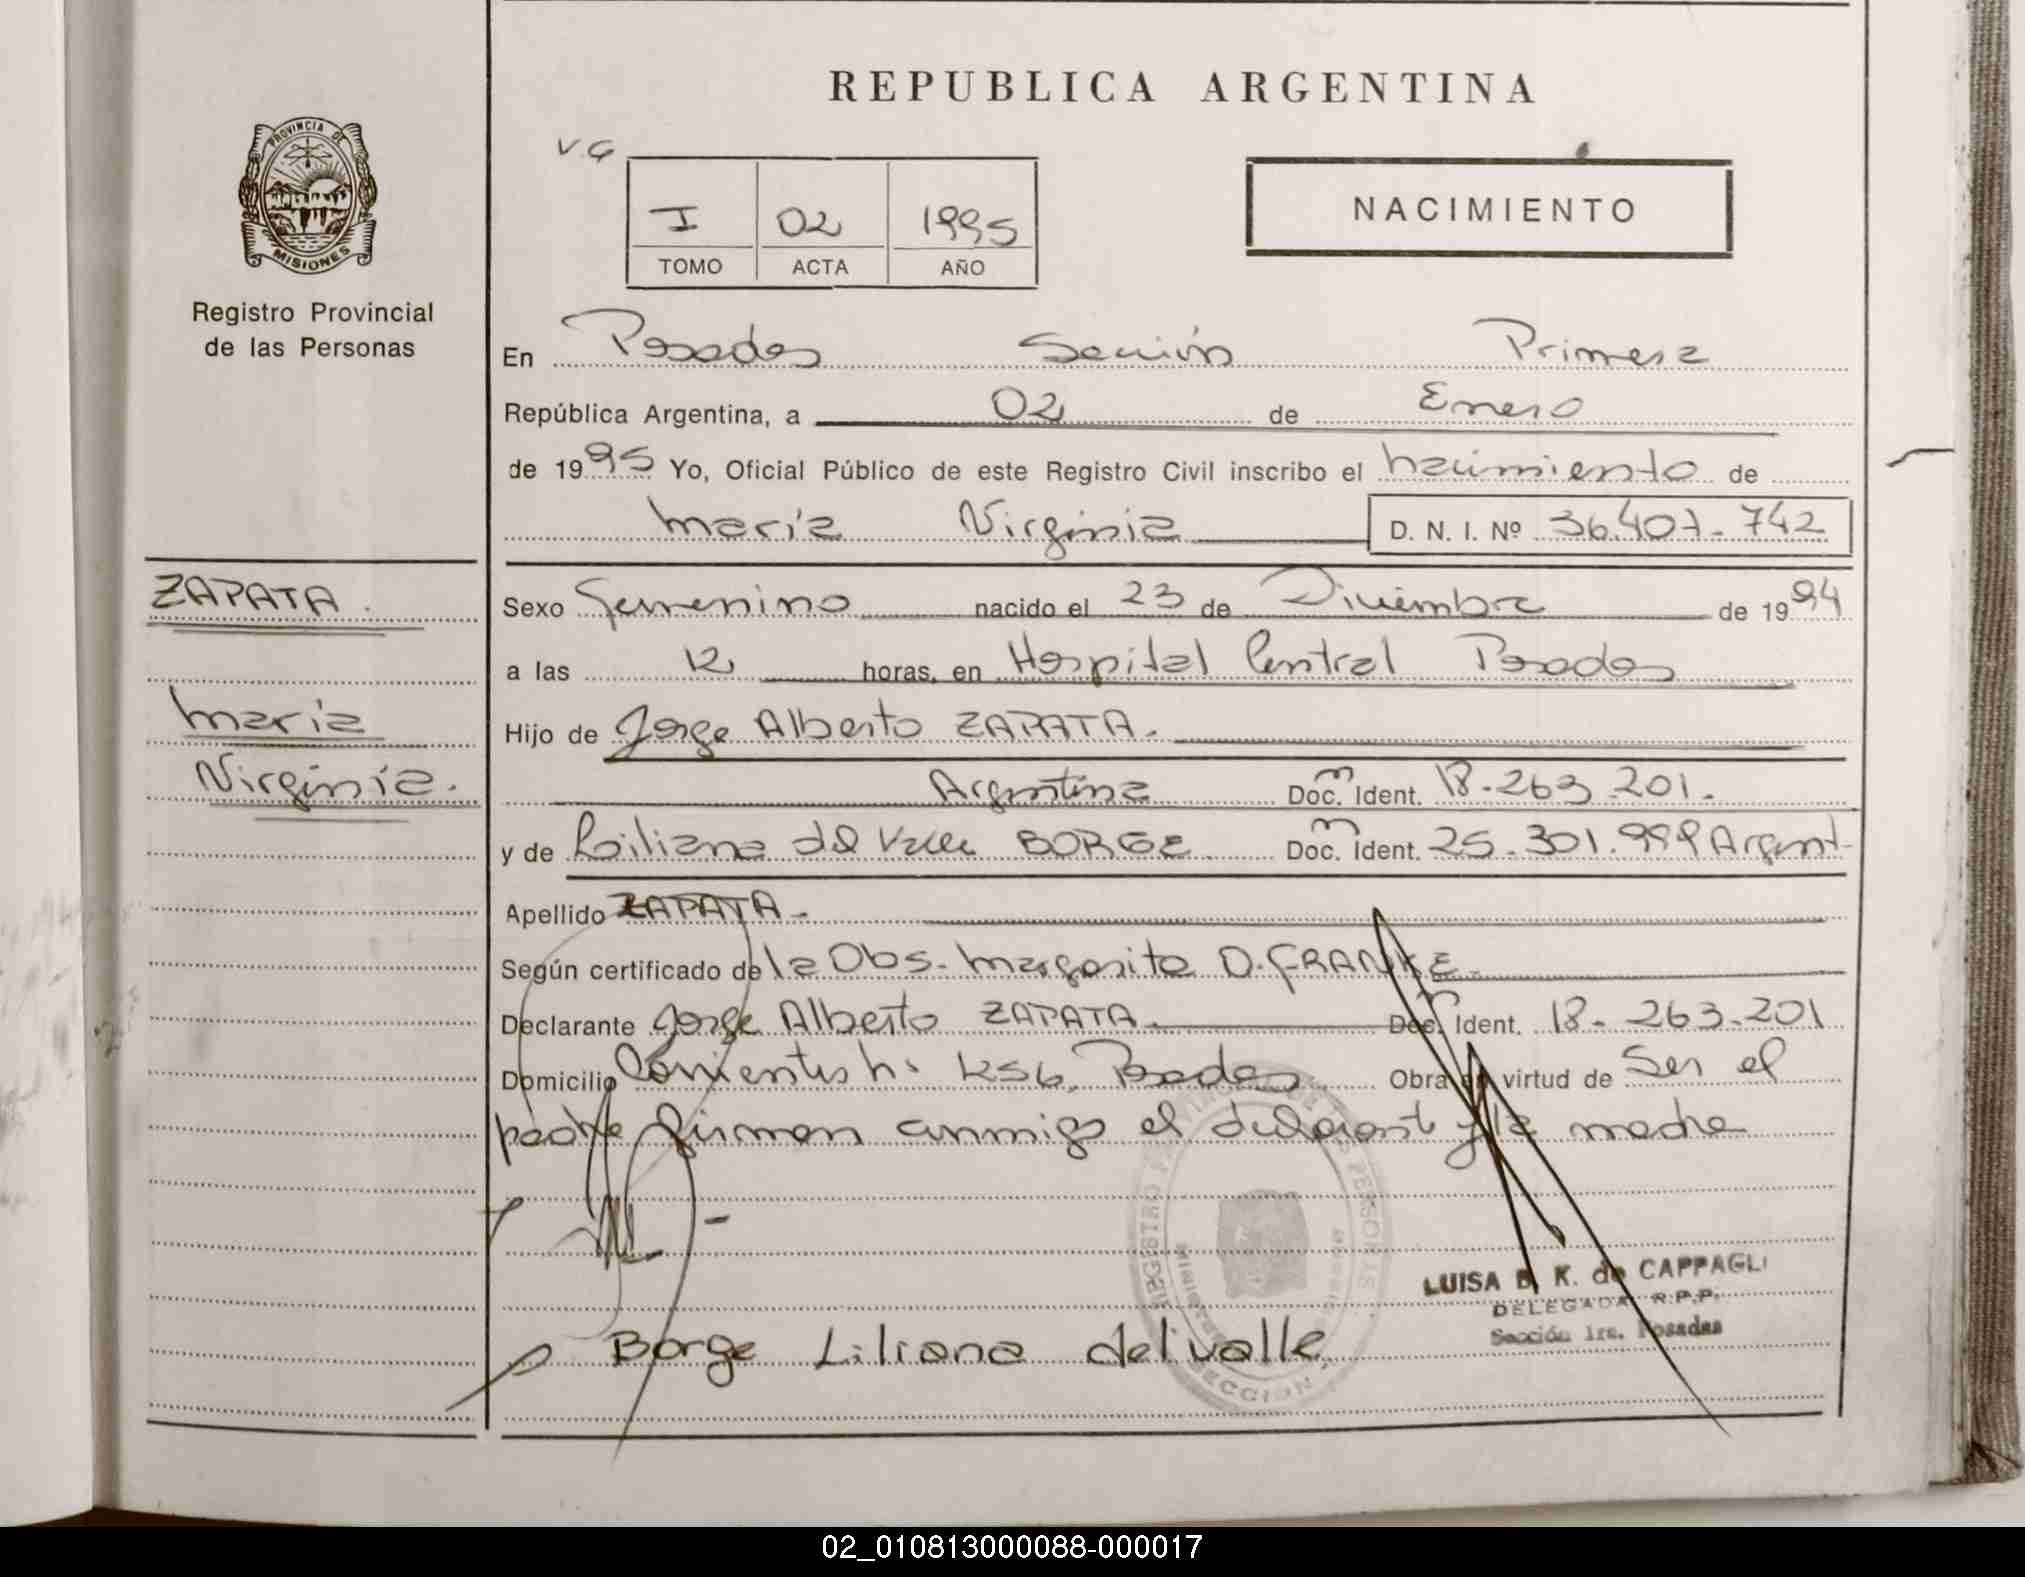 REPUBLICA ARGENTINA
PROVINCIA DE
MISIONES
Registro Provincial
de las Personas
V.G
I 02 1995
TOMO ACTA AÑO
NACIMIENTO
En Posadas Sección Primera
República Argentina, a 02 de Enero
de 1995 Yo, Oficial Público de este Registro Civil inscribo el nacimiento de
María Virginia D. N. I. Nº 36.407-742
ZAPATA.
María
Virginia.
Sexo Femenino nacido el 23 de Diciembre de 1994
a las 12 horas, en Hospital Central Posadas
Hijo de Jorge Alberto ZAPATA.
Argentina Doc. Ident. 18-263.201.
y de Liliana del Valle BORGE Doc. Ident. 25-301.999 Argent-
Apellido ZAPATA-
Según certificado de la Obs. Margarita D. FRANKE
Declarante Jorge Alberto ZAPATA Doc. Ident. 18-263.201
Domicilio Corrientes nº Posadas Obra en virtud de Ser el
padre firman conmigo el declarant y la madre
LUISA K. de CAPPAGLI
DELEGADA R.P.P.
Sección 1ra. Posadas
Borge Liliana del valle
02_010813000088-000017